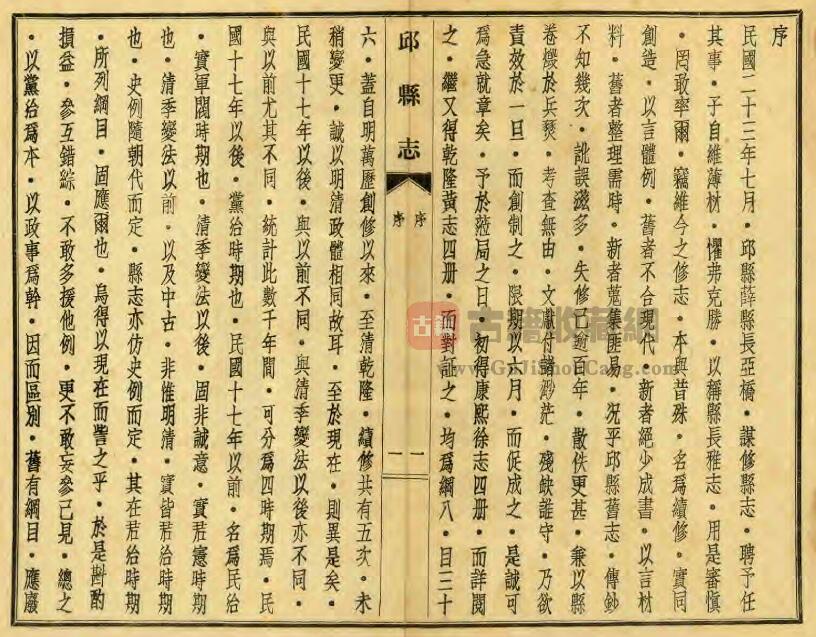 序
民國二十三年七月·邱縣薛縣長亞橋·謀修縣志·聘予任
其事·予自維薄材·懼弗克勝·以稱縣長雅志·用是審愼
·罔敢率爾·竊維今之修志·本與昔殊·名爲續修·實同
創造·以言體例·舊者不合現代·新者絕少成書·以言材
料·舊者整理需時·新者蒐集匪易·況乎邱縣舊志·傳鈔
不知幾次·訛誤滋多·失修已逾百年·散佚更甚·兼以縣
卷燬於兵燹·考查無由·文獻付諸渺茫·殘缺誰守·乃欲
責效於一旦·而創制之·限期以六月·而促成之·是誠可
爲急就章矣·予於蒞局之日·初得康熙徐志四册·而詳閱
之·繼又得乾隆黃志四册·而對証之·均爲綱八·目三十
邱縣志
序
序
一
一
六·蓋自明萬歷創修以來·至清乾隆·續修共有五次·未
稍變更·誠以明清政體相同故耳·至於現在·則異是矣·
民國十七年以後·與以前不同·與清季變法以後亦不同·
與以前尤其不同·統計此數千年間·可分爲四時期焉·民
國十七年以後·黨治時期也·民國十七年以前·名爲民治
·實軍閥時期也·清季變法以後·固非誠意·實君憲時期
也·清季變法以前·以及中古·非惟明清·實皆君治時期
也·史例隨朝代而定·縣志亦仿史例而定·其在君治時期
·所列綱目·固應爾也·烏得以現在而訾之乎·於是斟酌
損益·參互錯綜·不敢多援他例·更不敢妄參己見·總之
·以黨治爲本·以政事爲幹·因而區別·舊有綱目·應廢
古籍收藏網
www.GuJiShouCang.com